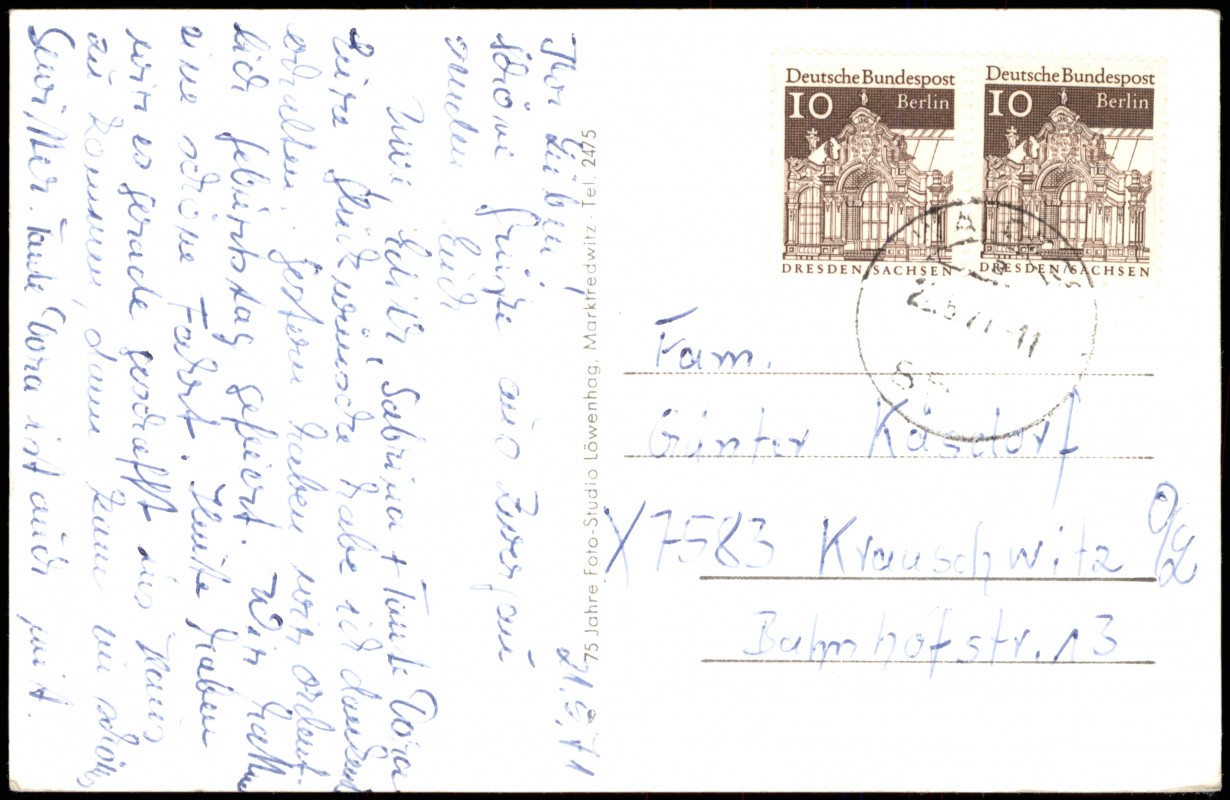 21.5.71
Ihr Lieben!
schöne Grüße aus
senden Euch
Uwe, Sabrina + Tante Dora
Glückwünsche habe ich dankend
erhalten. Gestern haben wir ordent-
lich Geburtstag gefeiert. Wir hatten
eine schöne Fahrt. Heute haben
wir es gerade geschafft ins Haus
zu kommen, dann kam ein schönes
Gewitter. Tante Dora ist auch mit.
75 Jahre Foto-Studio Löwenhag, Marktredwitz · Tel. 2475
Deutsche Bundespost
10 Berlin
DRESDEN/SACHSEN
Deutsche Bundespost
10 Berlin
DRESDEN/SACHSEN
Fam.
Günter Käsdorf
X7583 Krauschwitz O/L
Bahnhofstr. 13